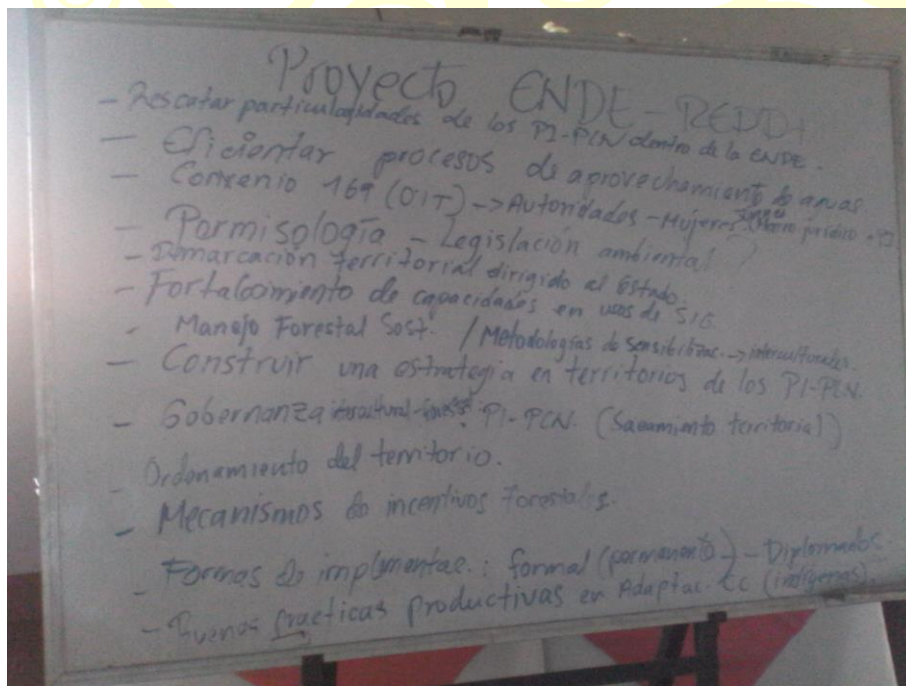 Proyecto ENDE-REDD+
- Rescatar particularidades de los PI-PCN dentro de la ENDE.
- Eficientar procesos de aprovechamiento de aguas
- Convenio 169 (OIT) -> Autoridades - Mujeres jurídico
- Permisología - Legislación ambiental ?
- Demarcación territorial dirigido al Estado.
- Fortalecimiento de capacidades en usos de SIG.
- Manejo Forestal Sost. / Metodologías de sensibilizac. -> interculturales.
- Construir una estrategia en territorios de los PI-PCN.
- Gobernanza PI-PCN. (Saneamiento territorial)
- Ordenamiento del territorio.
- Mecanismos de incentivos forestales.
- Formas de implementac.: formal (permanente) - Diplomados
- Buenas practicas productivas en Adaptac. CC (indígenas).